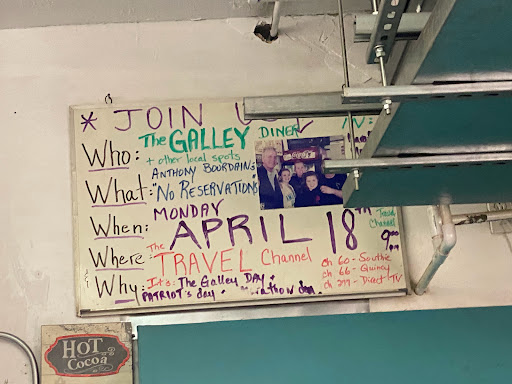 * JOIN
Who: The GALLEY DINER
+ other local spots
What: ANTHONY BOURDAIN'S
"No RESERVATIONS"
When: MONDAY APRIL 18TH 9:00 PM
Where: The TRAVEL Channel
ch 60 - Southie
ch 66 - Quincy
ch 277 - Direct TV
Why: It's: The Galley DAY +
PATRIOT'S day +
HOT
Cocoa